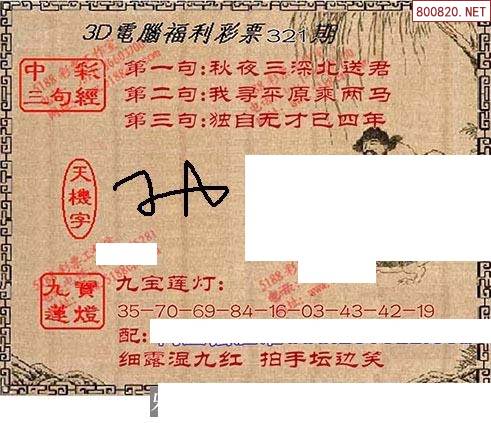 800820.NET
3D電腦福利彩票321期
中彩三句經
第一句:秋夜三深北送君
第二句:我寻平原乘两马
第三句:独自无才已四年
天機字
九寶蓮燈
九宝莲灯:
35-70-69-84-16-03-43-42-19
配:
细露湿九红 拍手坛边笑